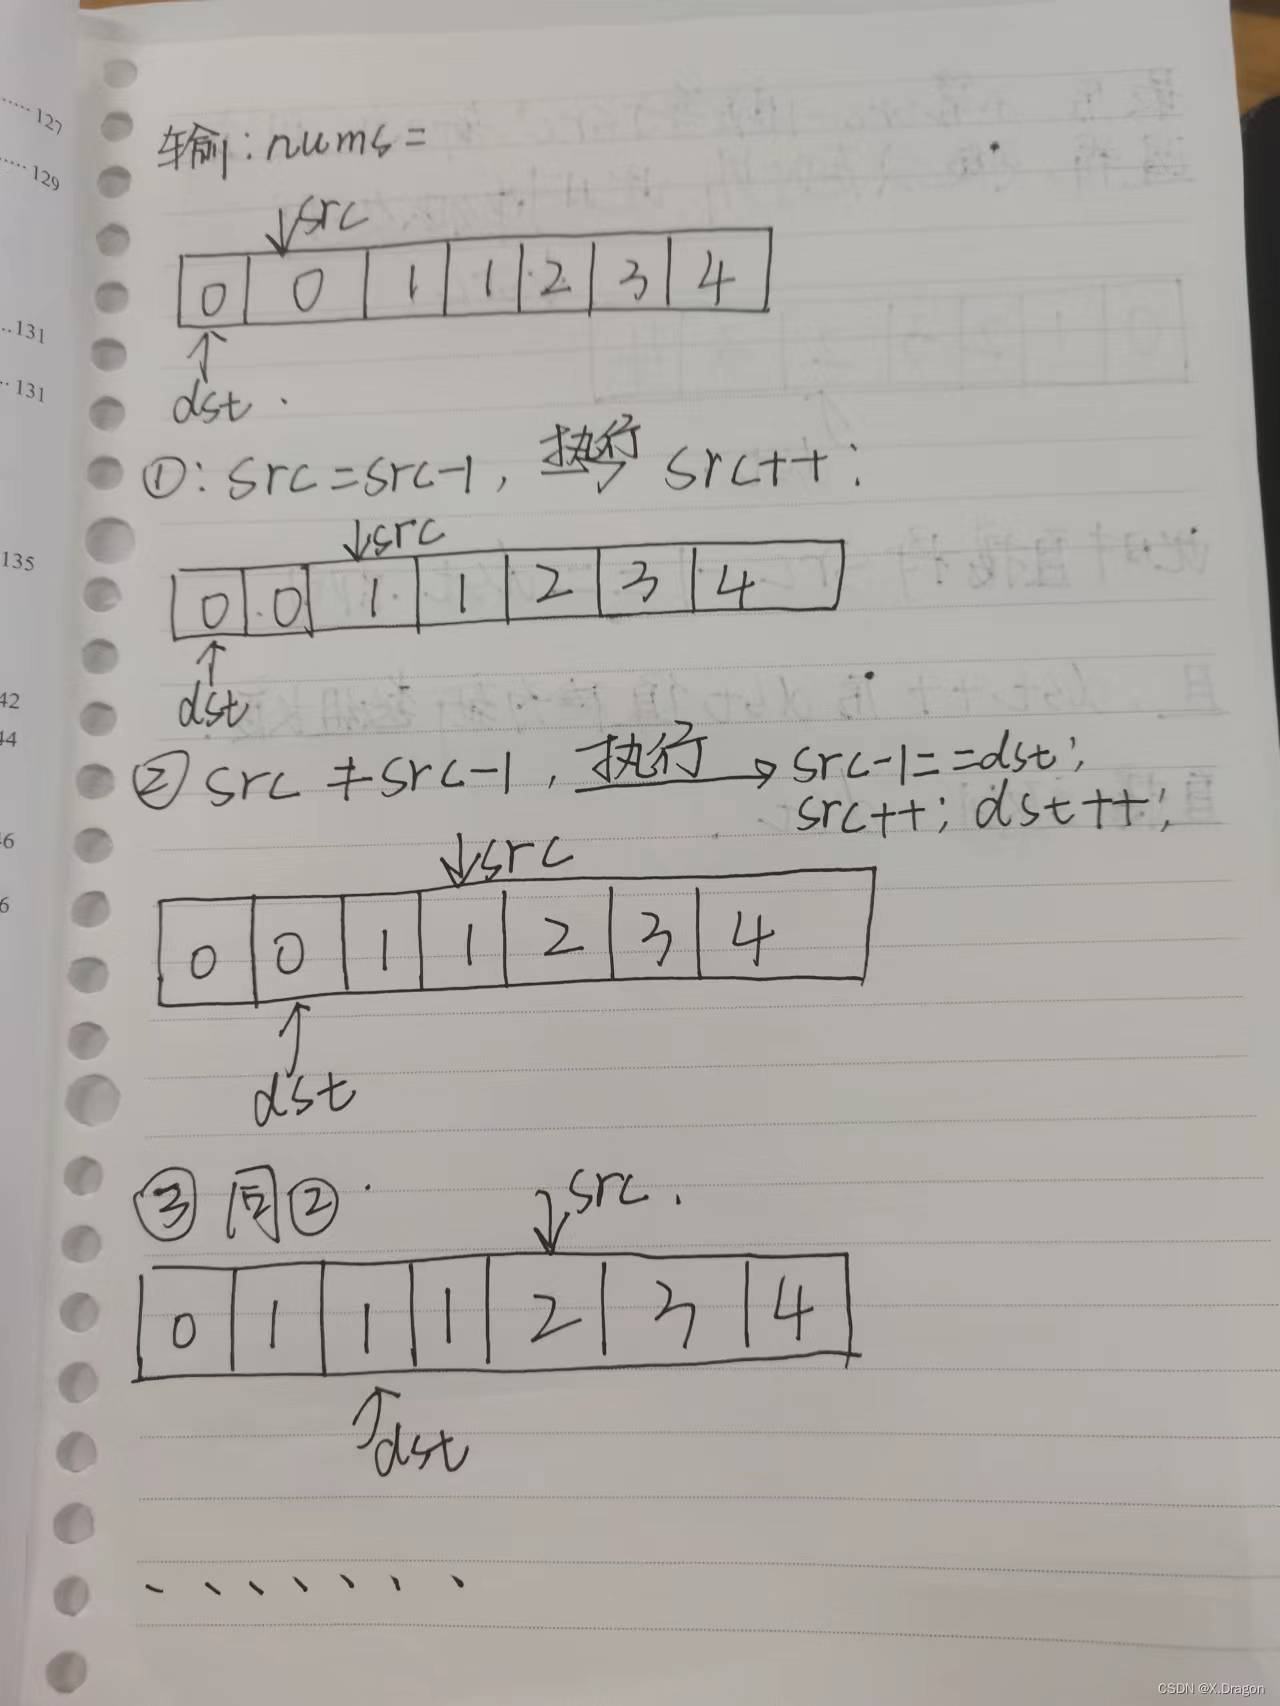 输: nums =
↓src
0 0 1 1 2 3 4
↑
dst
①: src=src-1, 执行→ src++;
↓src
0 0 1 1 2 3 4
↑
dst
② src≠src-1, 执行→ src-1==dst;
src++; dst++;
↓src
0 0 1 1 2 3 4
↑
dst
③ 同②
↓src.
0 1 1 1 2 3 4
↑dst
127
129
131
131
135
42
44
46
6
CSDN @X.Dragon